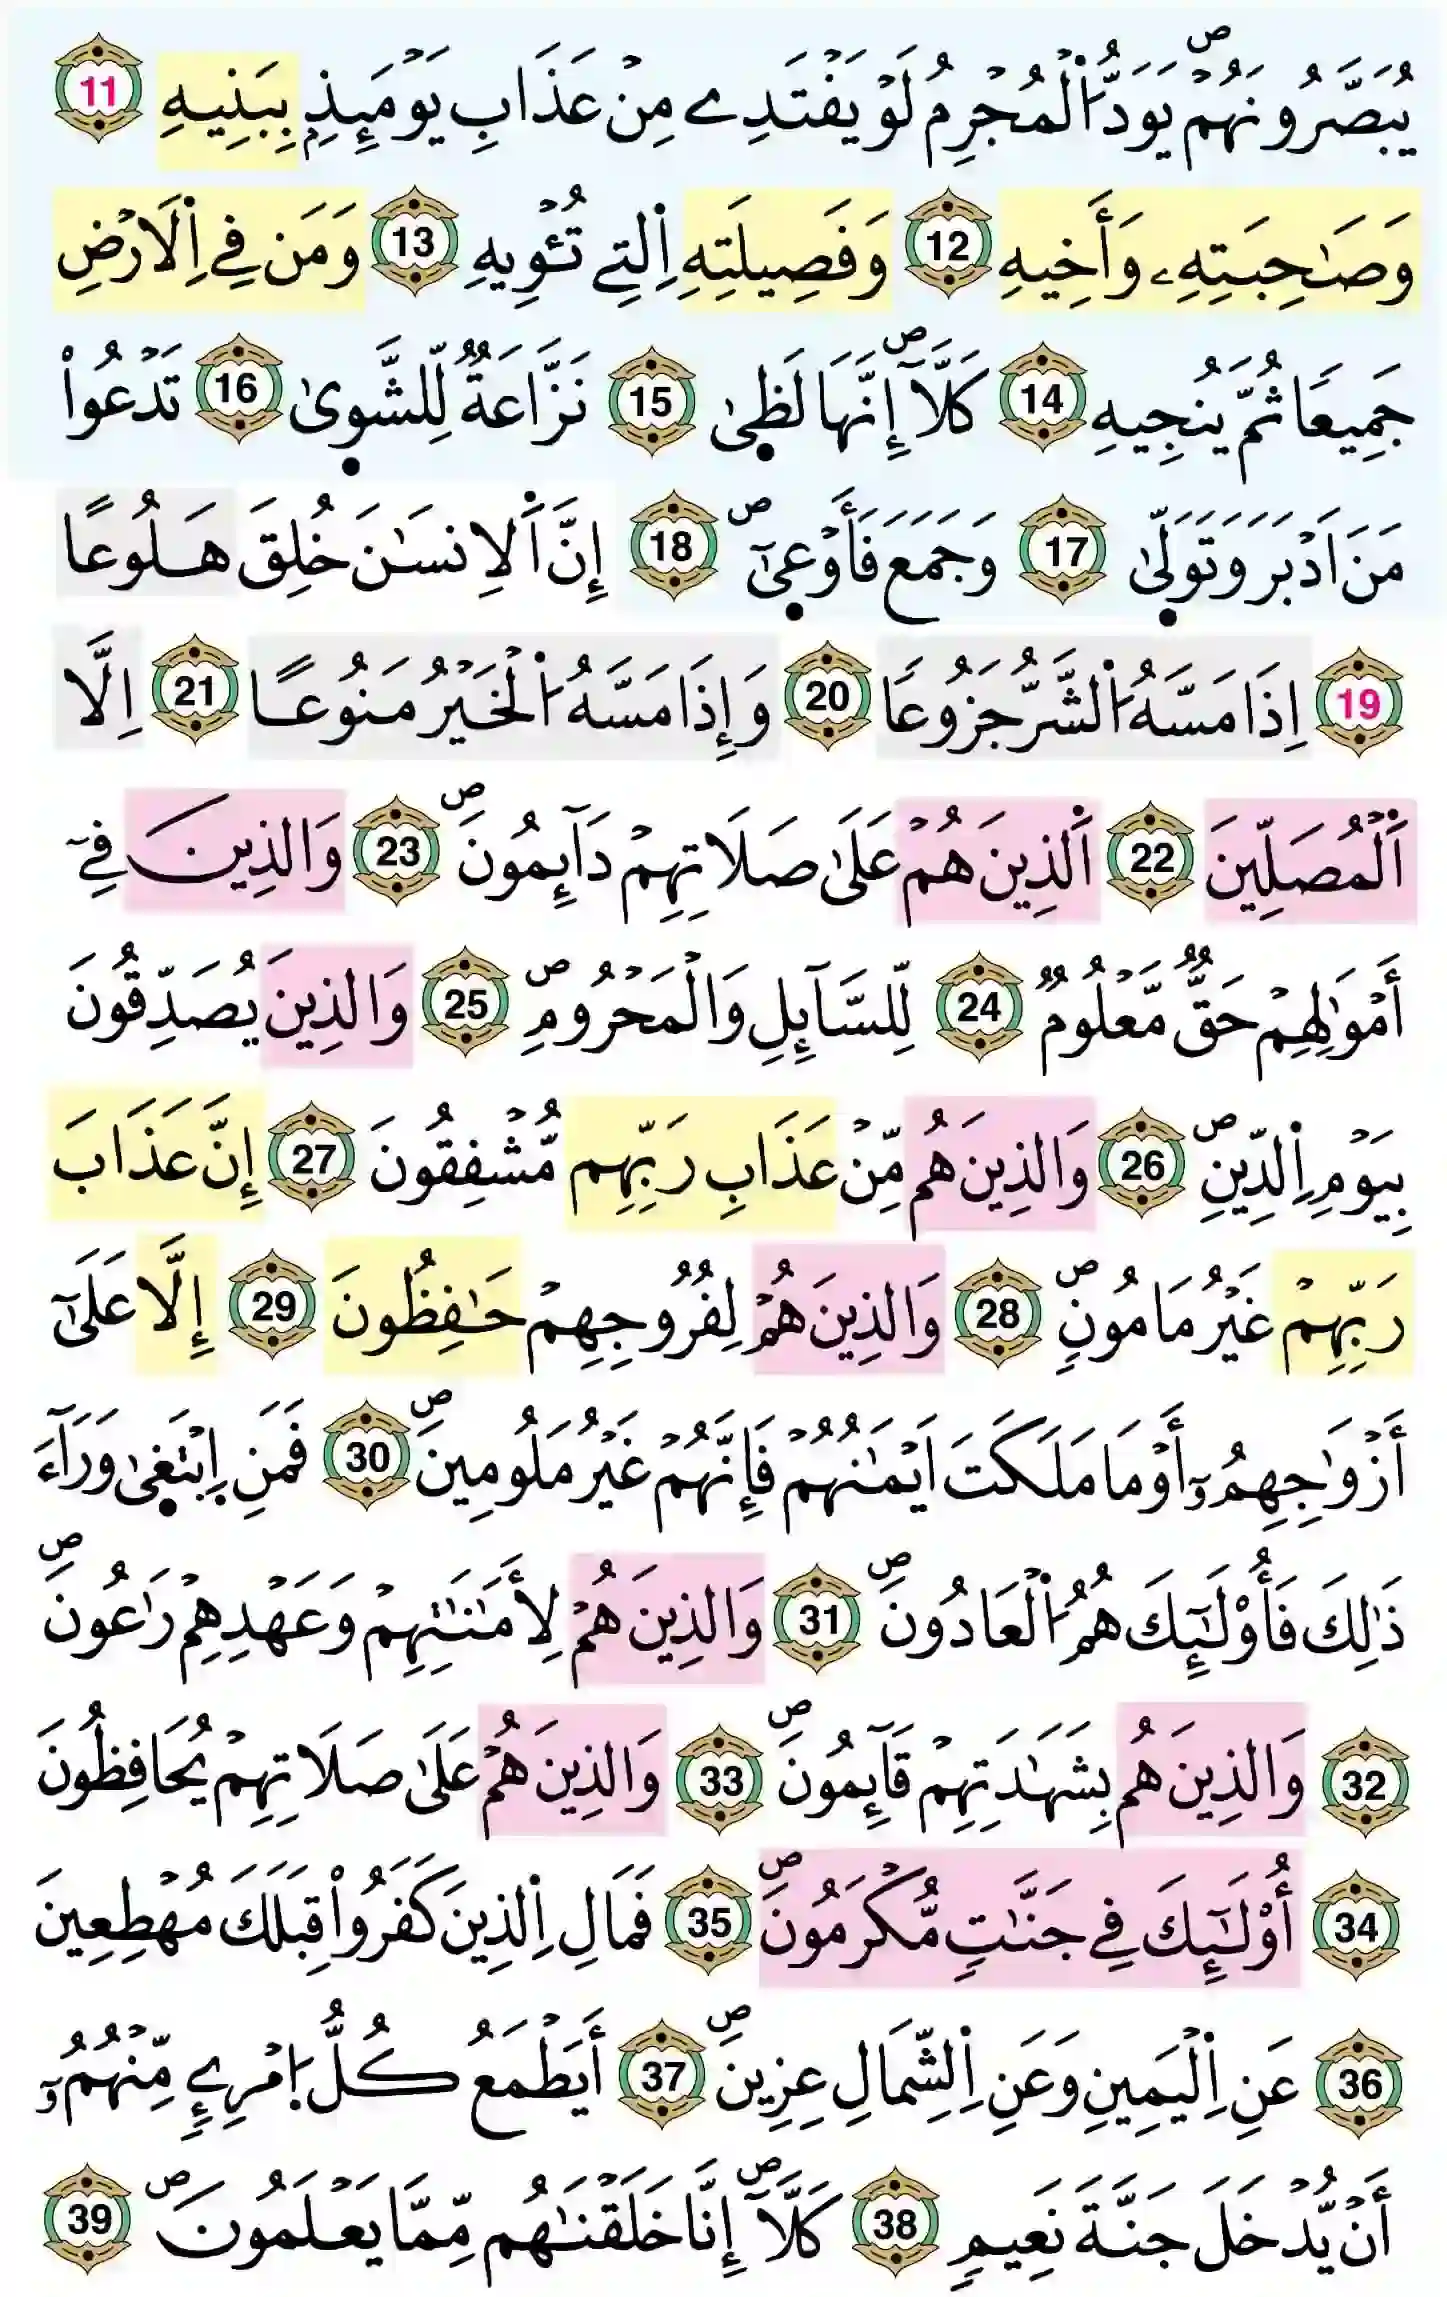 يُبَصَّرُونَهُمْۖ يَوَدُّ اُ۬لْمُجْرِمُ لَوْ يَفْتَدِے مِنْ عَذَابِ يَوْمَئِذِۢ بِبَنِيهِ 11
وَصَٰحِبَتِهِۦ وَأَخِيهِ 12 وَفَصِيلَتِهِ اِ۬لتِے تُـْٔوِيهِ 13 وَمَن فِے اِ۬لَارْضِ
جَمِيعاٗ ثُمَّ يُنجِيهِ 14 كَلَّآۖ إِنَّهَا لَظ۪يٰ 15 نَزَّاعَةٞ لِّلشَّو۪يٰ 16 تَدْعُواْ
مَنَ اَدْبَرَ وَتَوَلّ۪يٰ 17 وَجَمَعَ فَأَوْع۪يٰٓۖ 18 إِنَّ اَ۬لِانسَٰنَ خُلِقَ هَلُوعاً
19 اِذَا مَسَّهُ اُ۬لشَّرُّ جَزُوعاٗ 20 وَإِذَا مَسَّهُ اُ۬لْخَيْرُ مَنُوعاً 21 اِلَّا
اَ۬لْمُصَلِّينَ 22 اَ۬لذِينَ هُمْ عَلَيٰ صَلَاتِهِمْ دَآئِمُونَۖ 23 وَالذِينَ فِےٓ
أَمْوَٰلِهِمْ حَقّٞ مَّعْلُومٞ 24 لِّلسَّآئِلِ وَالْمَحْرُومِۖ 25 وَالذِينَ يُصَدِّقُونَ
بِيَوْمِ اِ۬لدِّينِۖ 26 وَالذِينَ هُم مِّنْ عَذَابِ رَبِّهِم مُّشْفِقُونَ 27 إِنَّ عَذَابَ
رَبِّهِمْ غَيْرُ مَامُونٖۖ 28 وَالذِينَ هُمْ لِفُرُوجِهِمْ حَٰفِظُونَ 29 إِلَّا عَلَيٰٓ
أَزْوَٰجِهِمُۥٓ أَوْ مَا مَلَكَتَ اَيْمَٰنُهُمْ فَإِنَّهُمْ غَيْرُ مَلُومِينَۖ 30 فَمَنِ اِ۪بْتَغ۪يٰ وَرَآءَ
ذَٰلِكَ فَأُوْلَٰٓئِكَ هُمُ اُ۬لْعَادُونَۖ 31 وَالذِينَ هُمْ لِأَمَٰنَٰتِهِمْ وَعَهْدِهِمْ رَٰعُونَۖ
32 وَالذِينَ هُم بِشَهَٰدَتِهِمْ قَآئِمُونَۖ 33 وَالذِينَ هُمْ عَلَيٰ صَلَاتِهِمْ يُحَافِظُونَ
34 أُوْلَٰٓئِكَ فِے جَنَّٰتٖ مُّكْرَمُونَۖ 35 فَمَالِ اِ۬لذِينَ كَفَرُواْ قِبَلَكَ مُهْطِعِينَ
36 عَنِ اِ۬لْيَمِينِ وَعَنِ اِ۬لشِّمَالِ عِزِينَۖ 37 أَيَطْمَعُ كُلُّ اُ۪مْرِےٕٖ مِّنْهُمُۥٓ
أَنْ يُّدْخَلَ جَنَّةَ نَعِيمٖ 38 كَلَّآۖ إِنَّا خَلَقْنَٰهُم مِّمَّا يَعْلَمُونَۖ 39